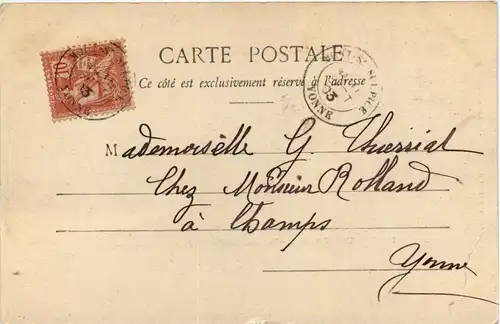 CARTE POSTALE
Ce côté est exclusivement réservé à l'adresse
10
YONNE
03
SULPICE
Mademoiselle G
Chez Monsieur Rolland
à Champs
Yonne